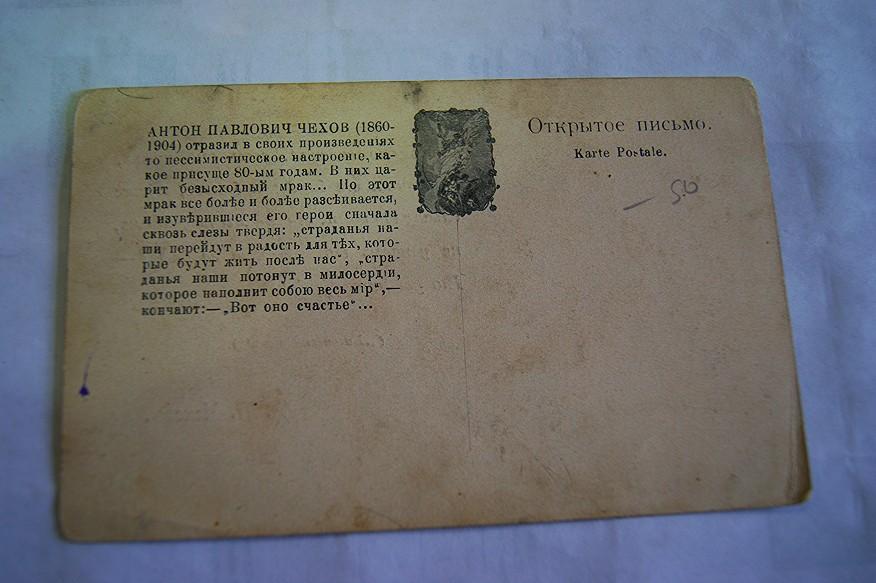 АНТОН ПАВЛОВИЧ ЧЕХОВ (1860-
1904) отразил в своих произведеніях
то пессимистическое настроеніе, ка-
кое присуще 80-ым годам. В них ца-
рит безысходный мрак... Но этот
мрак все болѣе и болѣе разсѣивается,
и изувѣрившіеся его герои сначала
сквозь слезы твердя: „страданья на-
ши перейдут в радость для тѣх, кото-
рые будут жить послѣ нас“, „стра-
данья наши потонут в милосердіи,
которое наполнит собою весь мір“,—
кончают:—„Вот оно счастье“...
Открытое письмо.
Karte Postale.